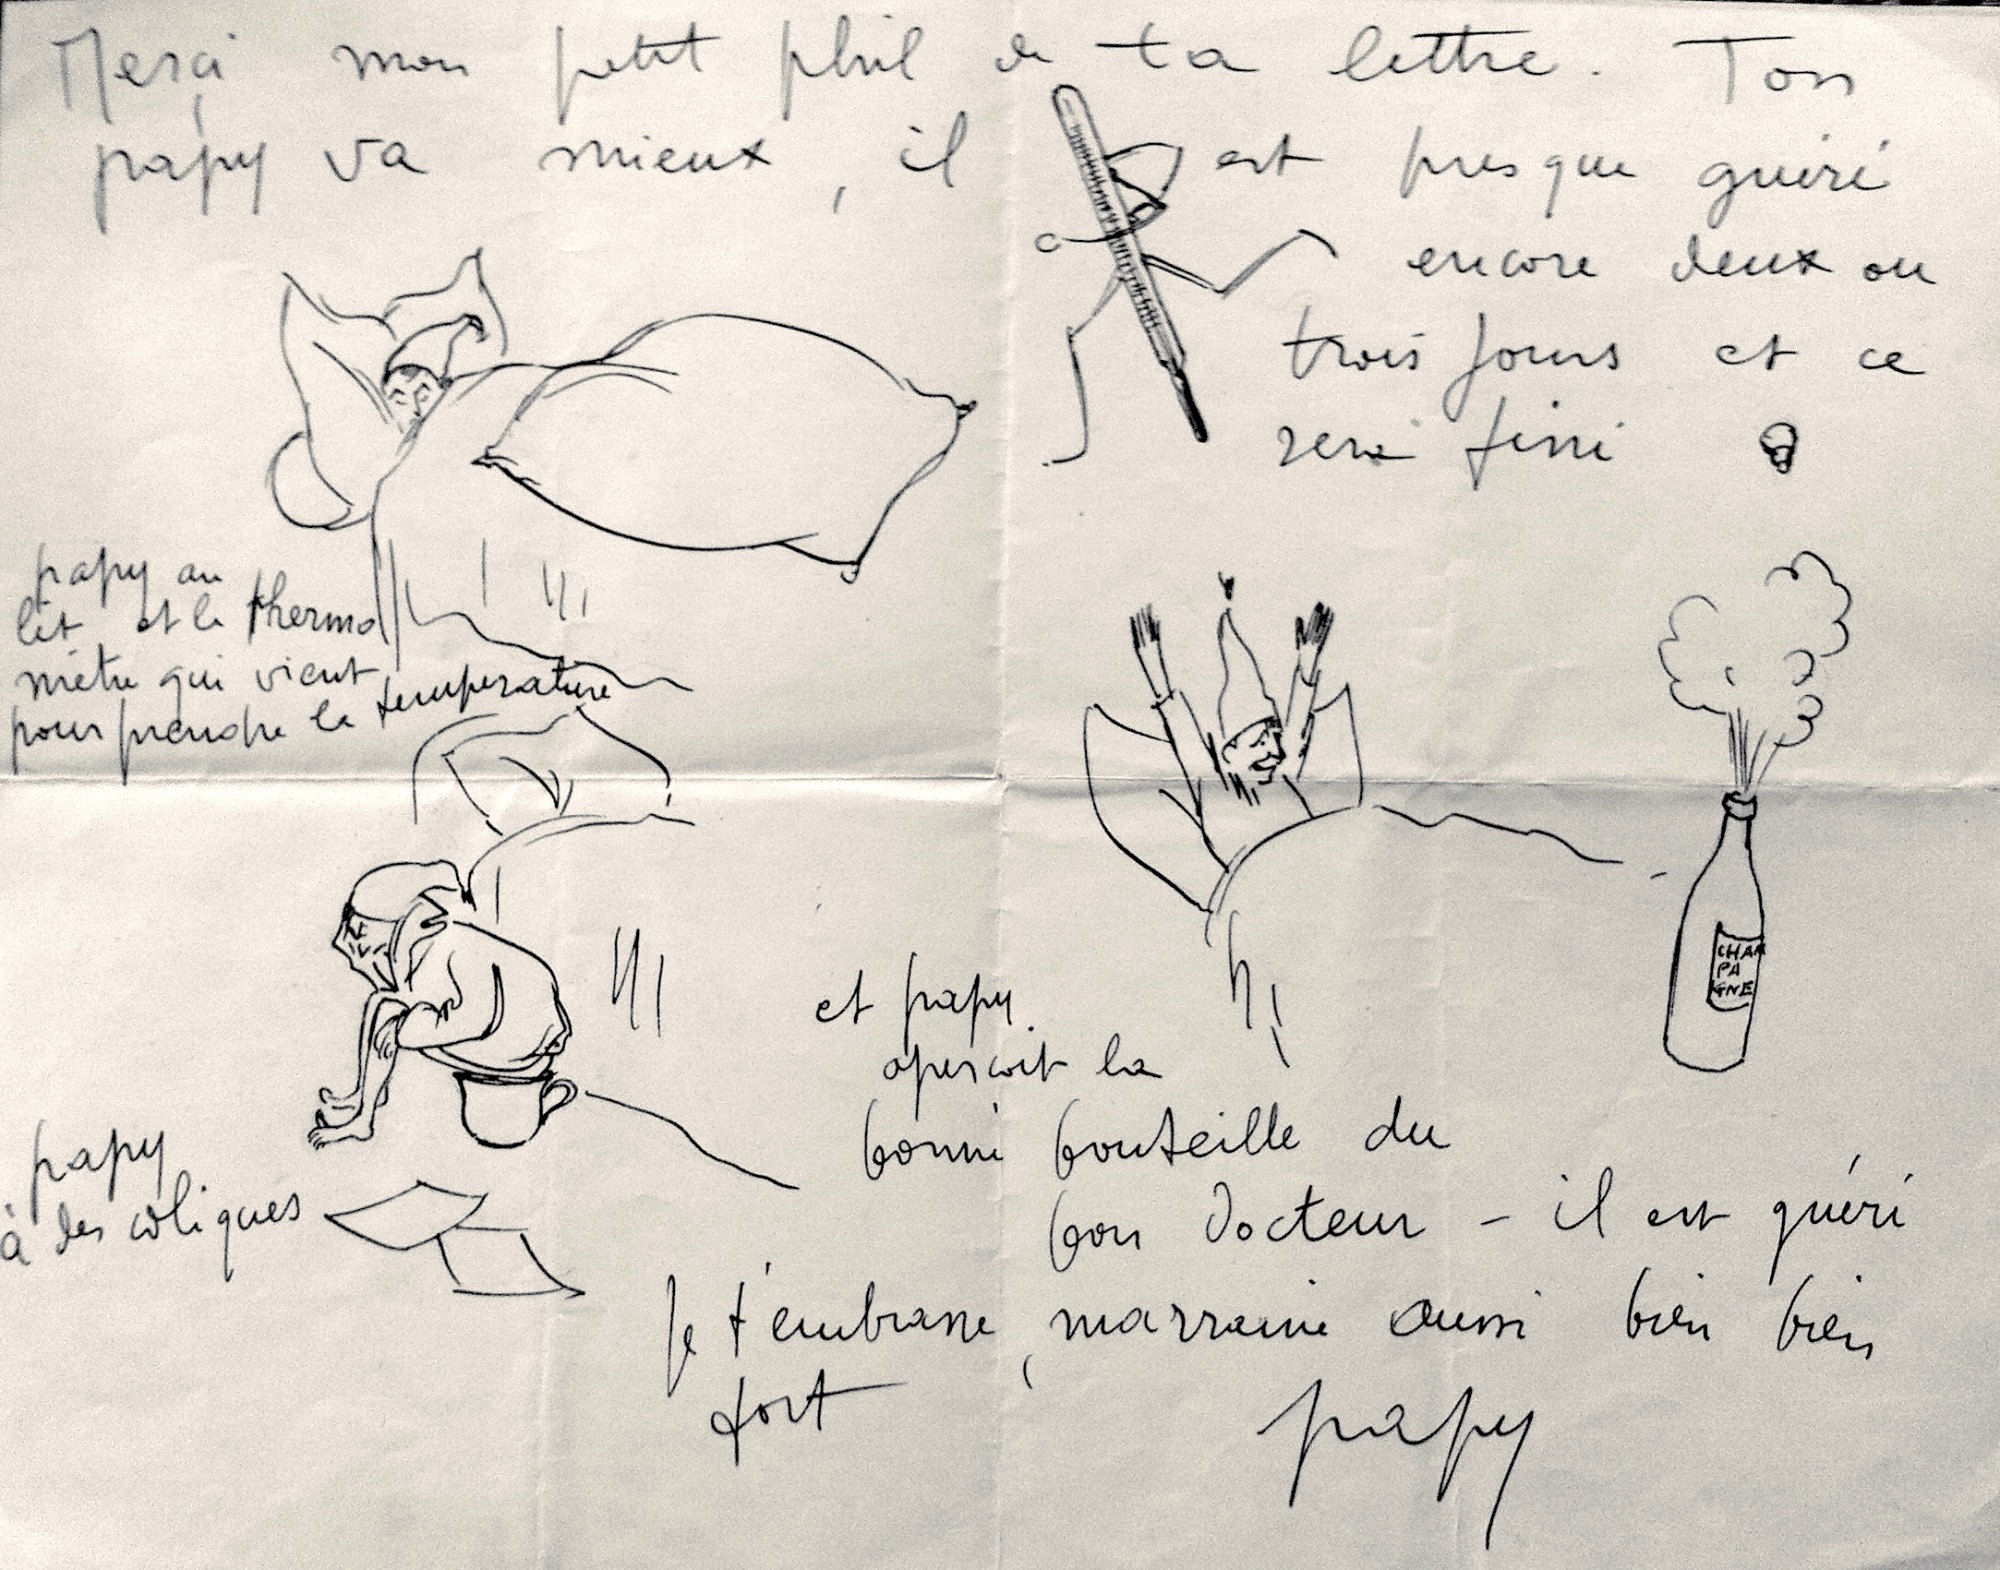 Merci mon petit phil de ta lettre. Ton
papy va mieux, il est presque guéri
encore deux ou
trois jours et ce
sera fini
papy au
lit et le thermo
mètre qui vient
pour prendre la température
papy
à des coliques
et papy
aperçoit la
bonne bouteille du
bon Docteur - il est guéri
CHAM
PA
GNE
Je t'embrasse, marraine aussi bien bien
fort
papy